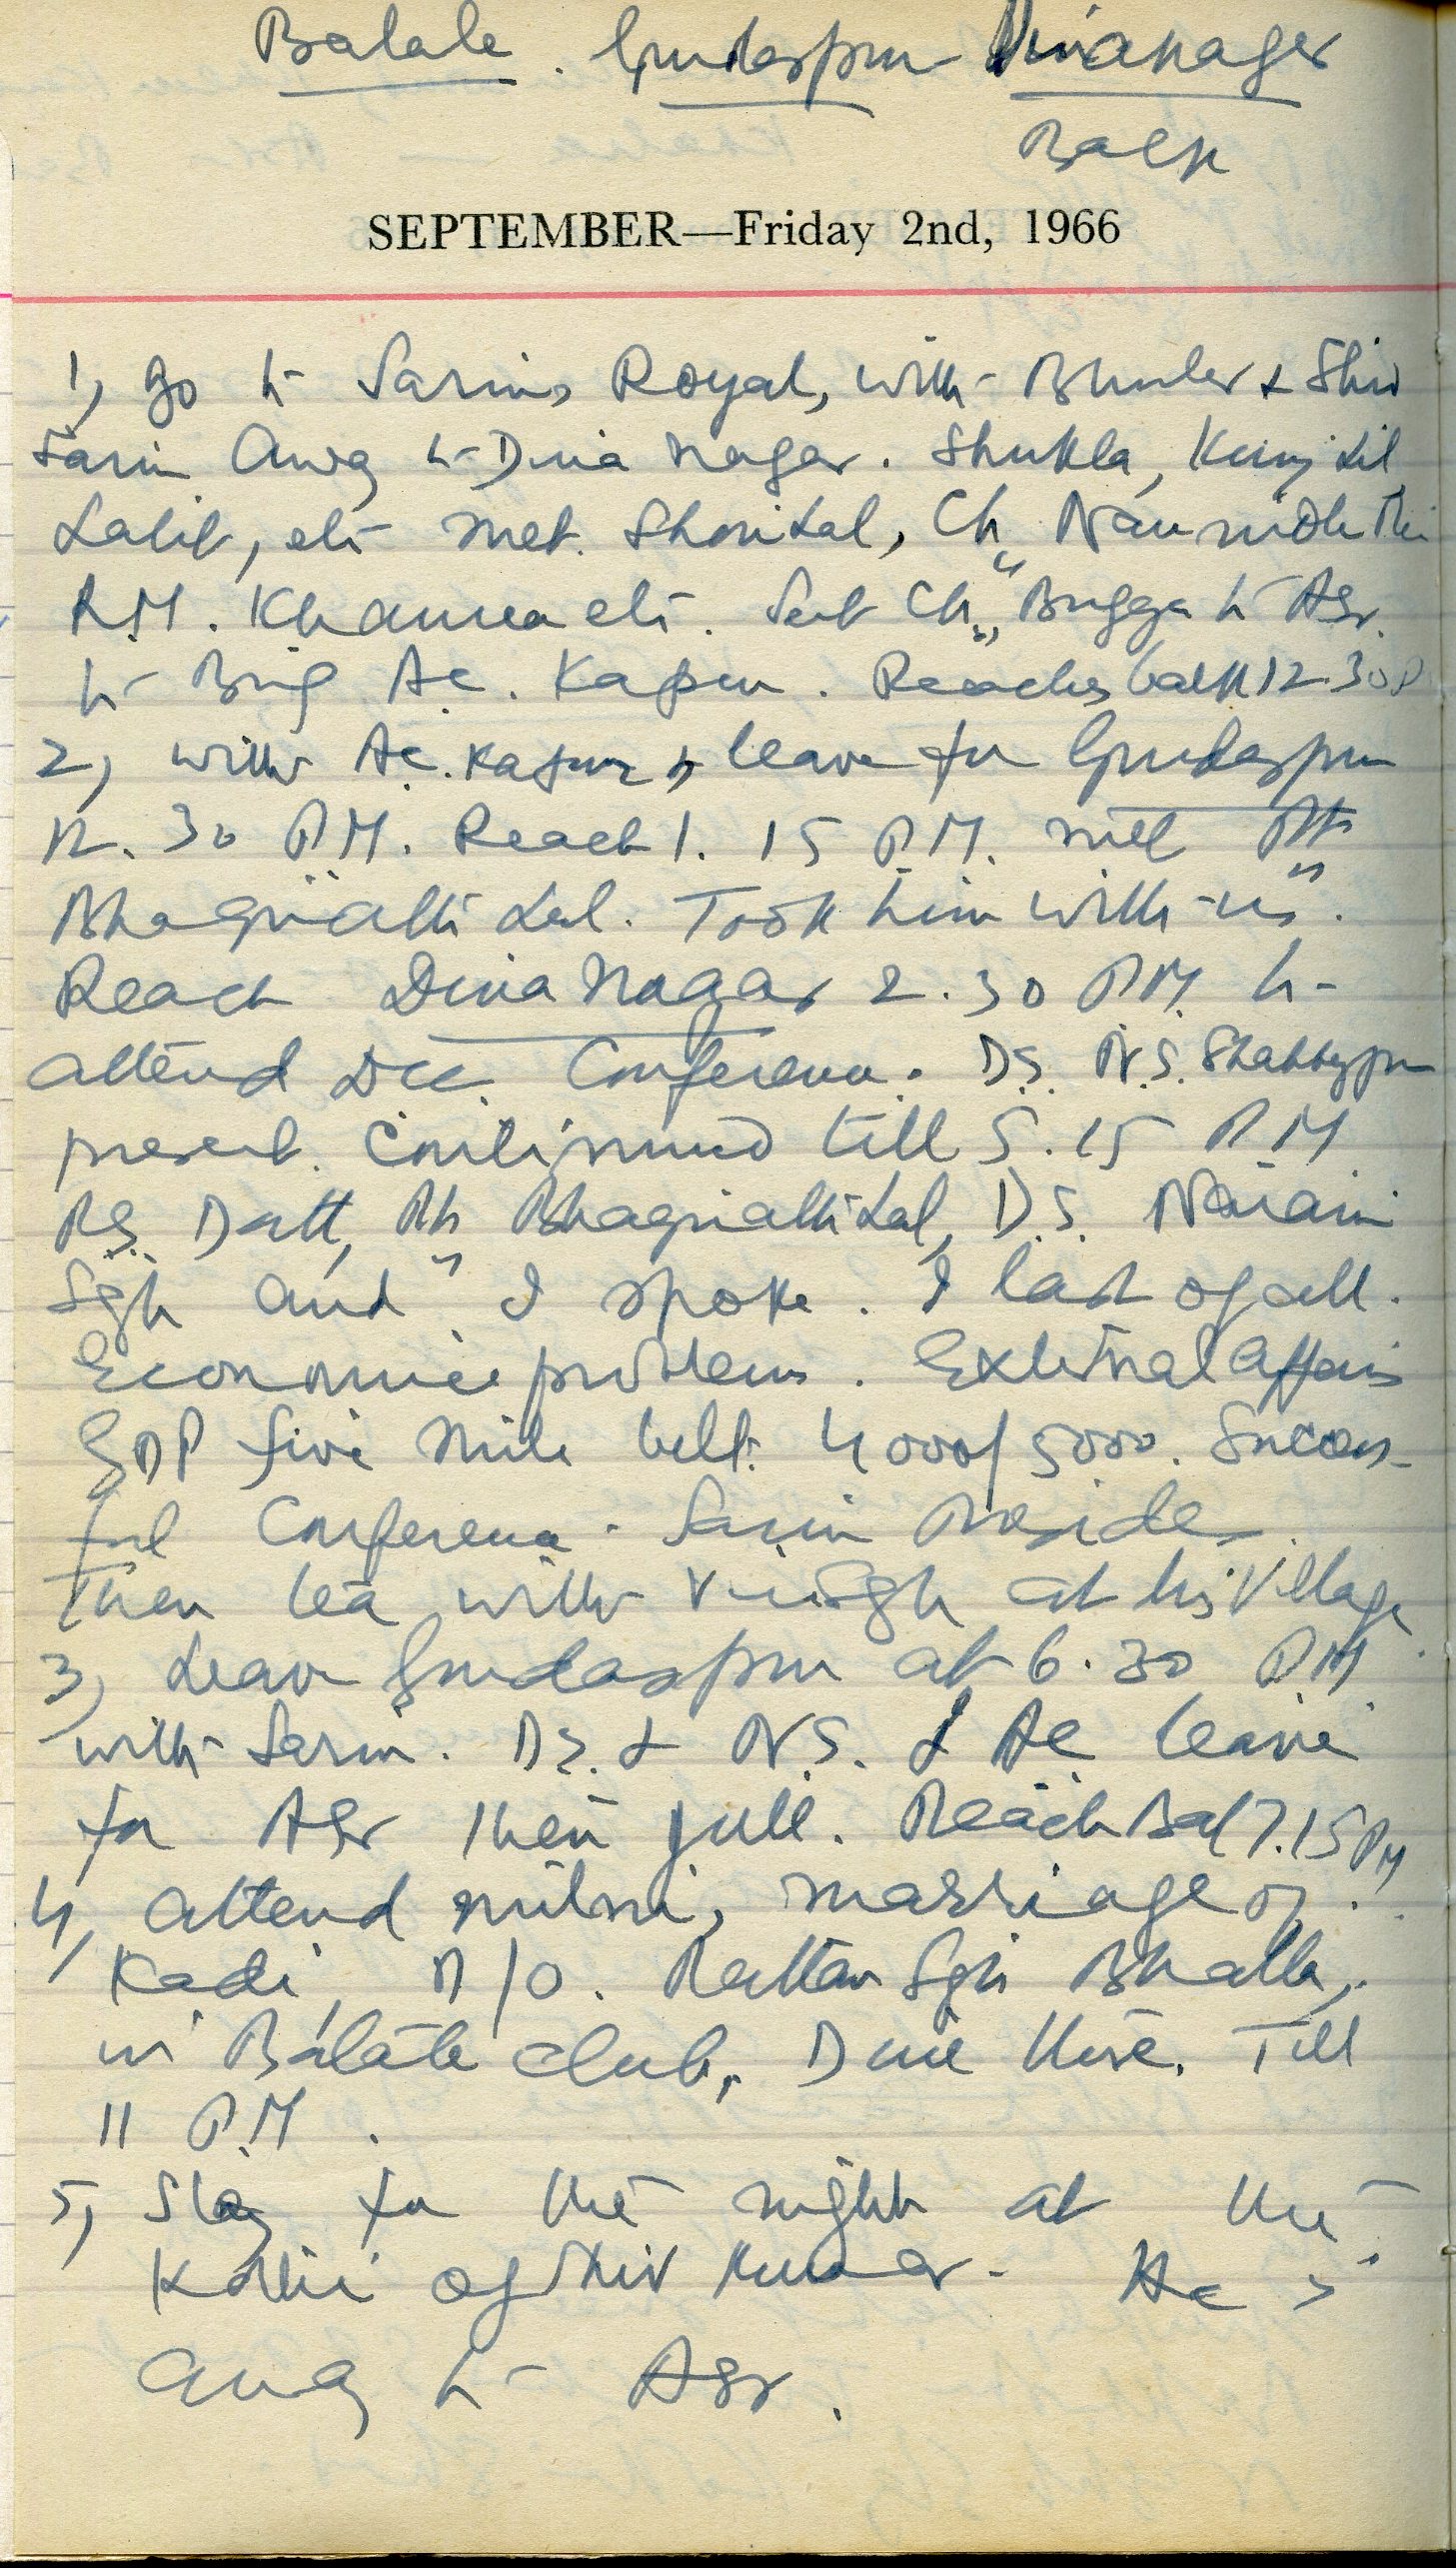 Batala. Gurdaspur Dinanager
Back
SEPTEMBER—Friday 2nd, 1966
1, go to Sarin's Royal, with Bhuler & Shiv
Sarin away to Dina Nagar. Shukla, Kunj Lal
Lalit, etc met. Shori Lal, Ch. Naunidh
R.M. Khanna etc. Sent Ch. Bugga to Asr.
to Bring Ac. Kapur. Reaches back 12.30 P
2, with Ac. Kapur, leave for Gurdaspur
12.30 P.M. Reach 1.15 P.M. meet Pt.
Bhagirath Lal. Took him with us.
Reach Dina Nagar 2.30 P.M. to
attend Dcc. Conference. D.S. N.S. Shahbazpuri
present. Continued till 5.15 P.M
R.S. Datt, Pt. Bhagirath Lal, D.S. Narain
Sgh and I spoke. I last of all.
Economic problems. External Affairs
five mile belt. 4000/5000. Success-
ful Conference. Sarin Presides.
Then tea with Sgh at his Village
3, Leave Gurdaspur at 6.30 P.M
with Sarin. D.S. & N.S. & Ac leave
for Asr then Jull. Reach Bat 7.15 PM
4, attend milni, marriage of
Kadi, D/O. Rattan Sgh Bhalla,
in Batala Club, Dine there. Till
11 P.M.
5, Stay for the night at the
Kothi of Shiv Kumar. Ac is
away to Asr.